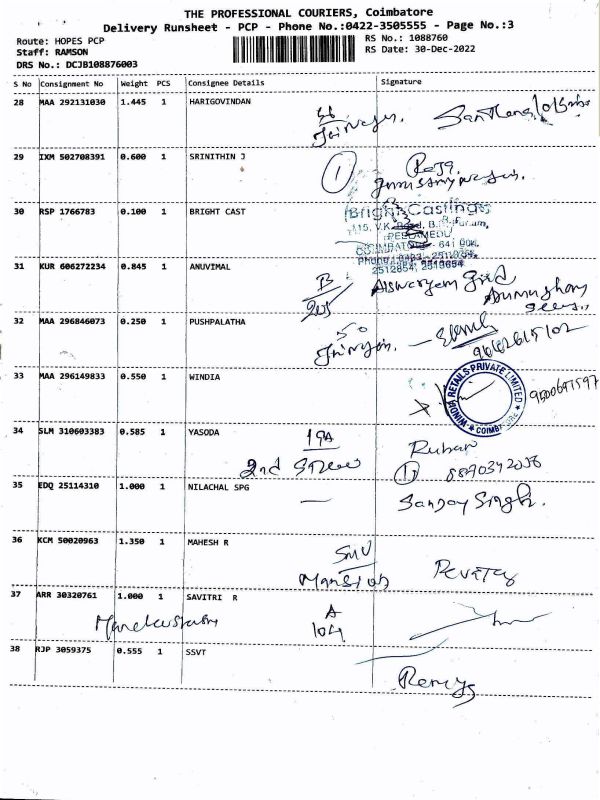 THE PROFESSIONAL COURIERS, Coimbatore
Delivery Runsheet - PCP - Phone No.:0422-3505555 - Page No.:3
Route: HOPES PCP
RS No.: 1088760
Staff: RAMSON
RS Date: 30-Dec-2022
DRS No.: DCJB108876003
S No Consignment No Weight PCS Consignee Details Signature
28 MAA 292131030 1.445 1 HARIGOVINDAN
29 IXM 502708391 0.600 1 SRINITHIN J
1
30 RSP 1766783 0.100 1 BRIGHT CAST
Bright Castings
PEELAMEDU
COIMBATORE - 641 004.
31 KUR 606272234 0.845 1 ANUVIMAL
B
205
32 MAA 296846073 0.250 1 PUSHPALATHA
50
33 MAA 296149833 0.550 1 WINDIA
WINDIA RETAILS PRIVATE LIMITED
COIMBATORE
34 SLM 310603383 0.585 1 YASODA
19A
2nd Street
Ruban
35 EDQ 25114310 1.000 1 NILACHAL SPG
Sanjoy Singh.
36 KCM 50020963 1.350 1 MAHESH R
SMV
Mansion
37 ARR 30320761 1.000 1 SAVITRI R
A
104
38 RJP 3059375 0.555 1 SSVT